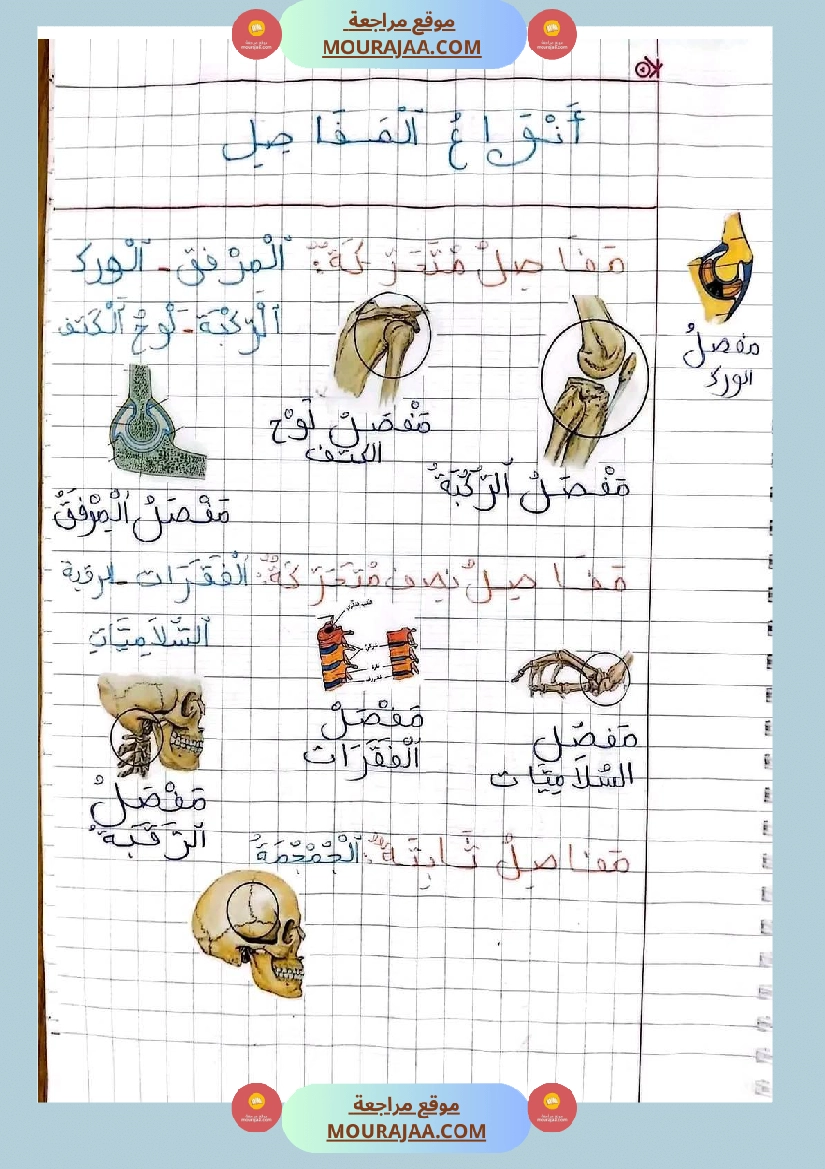 موقع مراجعة
MOURAJAA.COM
أَنْوَاعُ ٱلْمَفَاصِلِ
مَفَاصِلٌ مُتَحَرِّكَةٌ: ٱلْمِرْفَق - ٱلْوِرك
ٱلرُّكْبَة - لَوْحُ ٱلْكَتف
مفصلُ
الورك
مَفْصَلُ لَوْحِ
الكتف
مَفْصَلُ ٱلرُّكْبَةِ
مَفْصَلُ ٱلْمِرْفَقِ
مَفَاصِلٌ نِصف مُتَحَرِّكَةٌ: ٱلْفَقَرَات - الرقبة
ٱلسُّلَامِيَّاتِ
مَفْصَلُ
ٱلْفَقَرَات
مَفصَل
السُّلَامِيَّات
مَفْصَلُ
ٱلرَّقَبَةِ
مَفَاصِلٌ ثَابِتَةٌ: ٱلْجُمْجُمَةُ
موقع مراجعة
MOURAJAA.COM